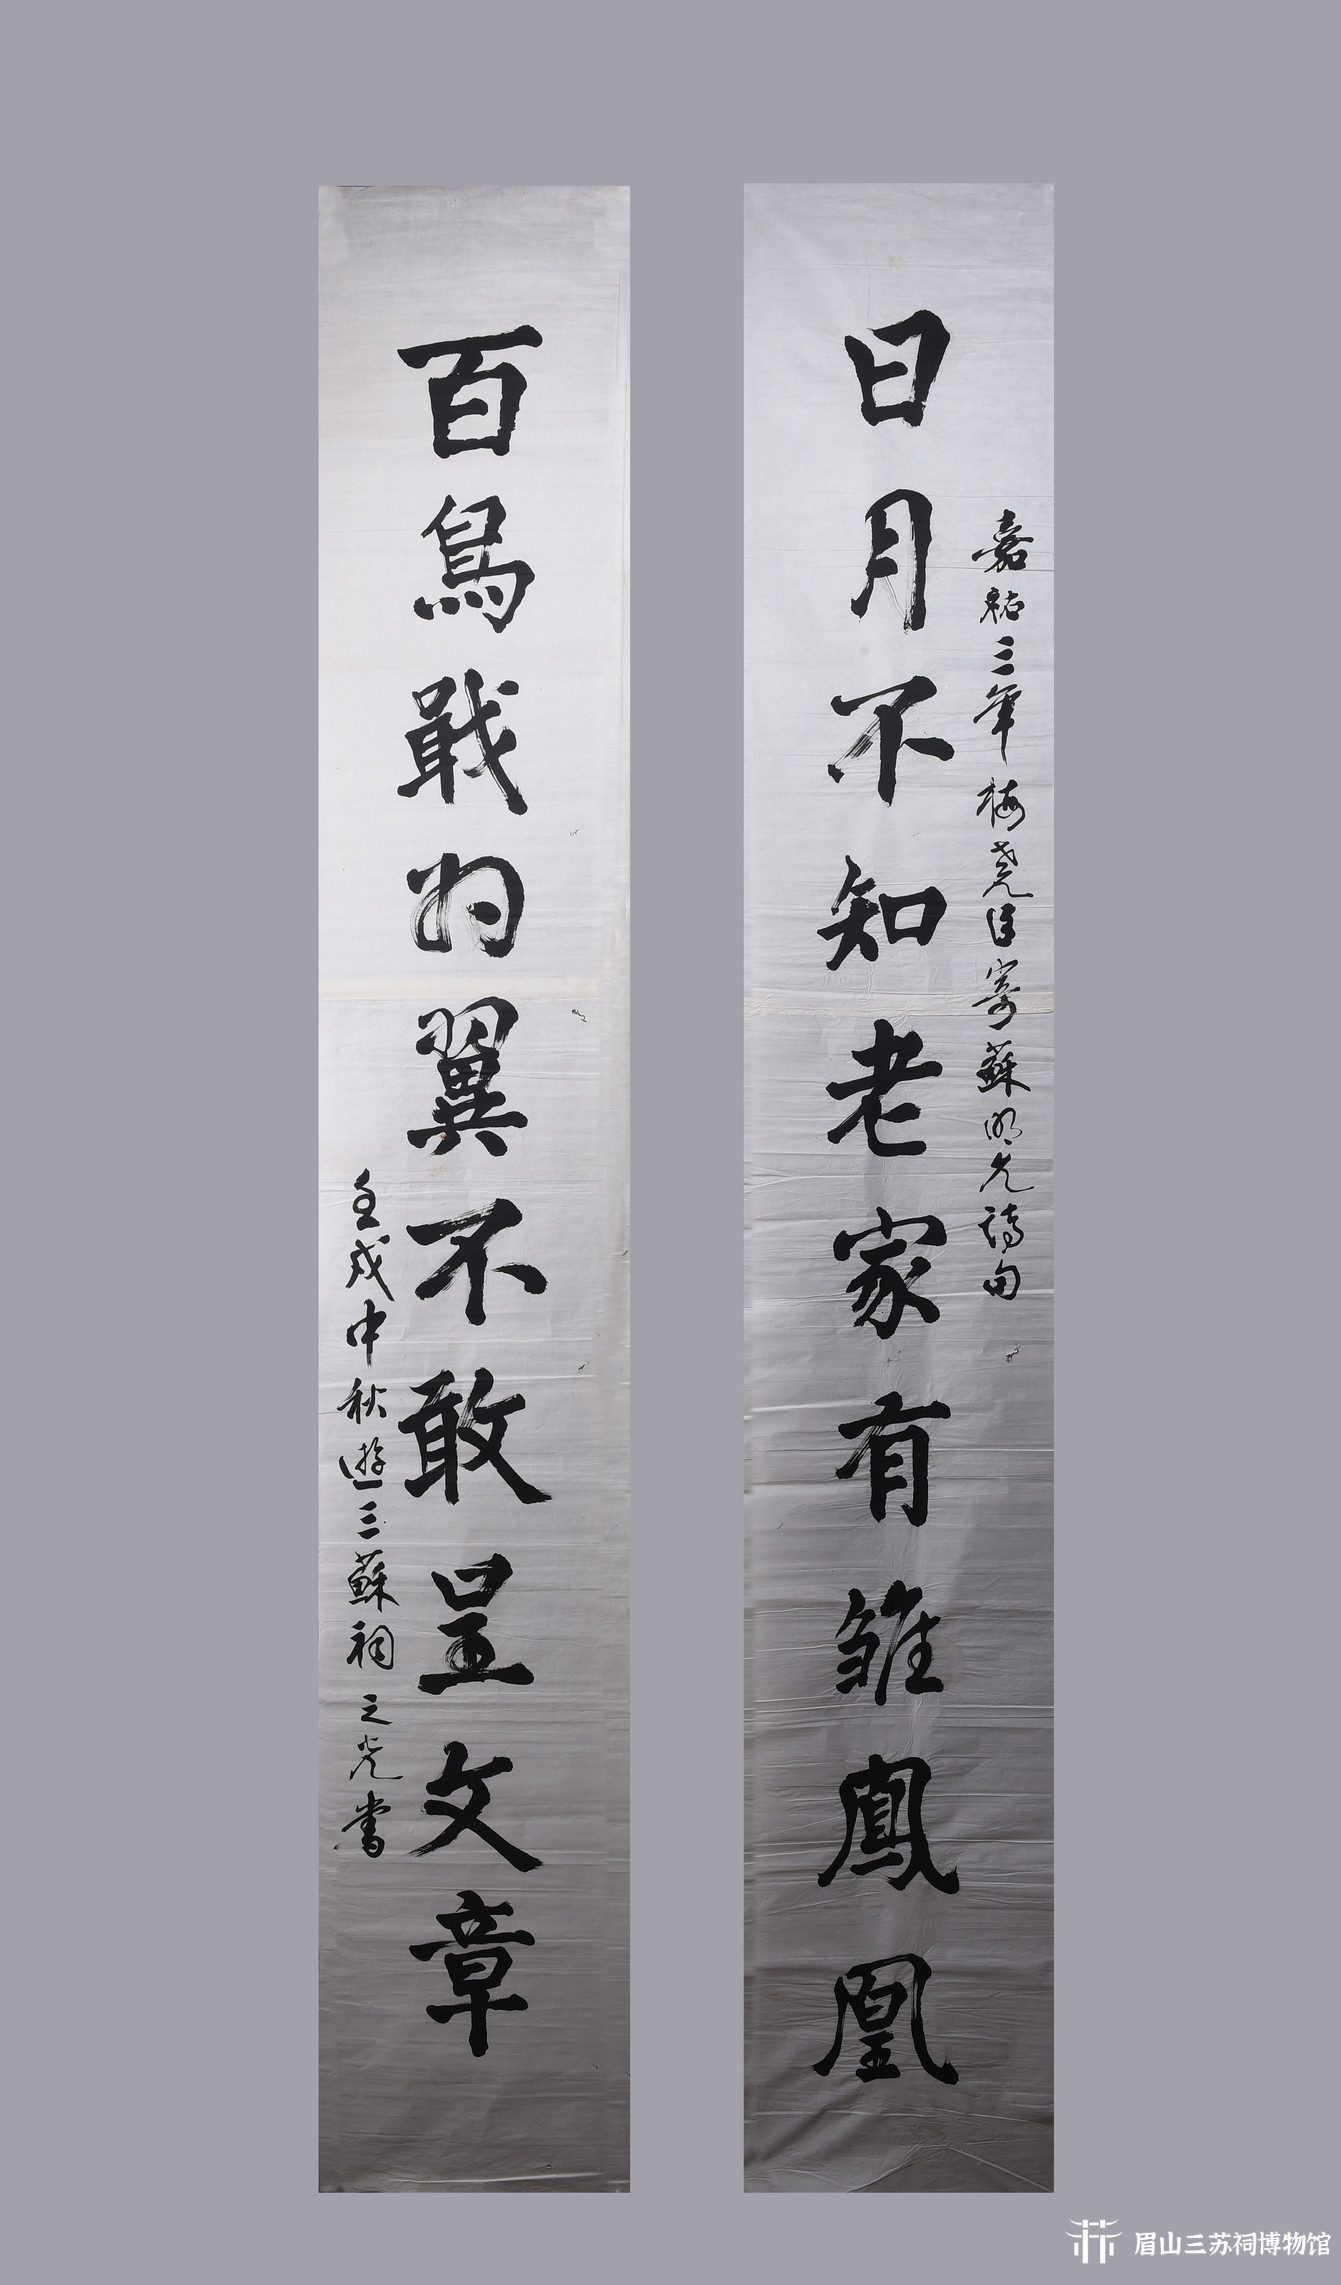 嘉祐三年梅堯臣寄蘇明允詩句
日月不知老家有雏鳳凰
百鳥戢羽翼不敢呈文章
壬戌中秋遊三蘇祠之光書
眉山三苏祠博物馆